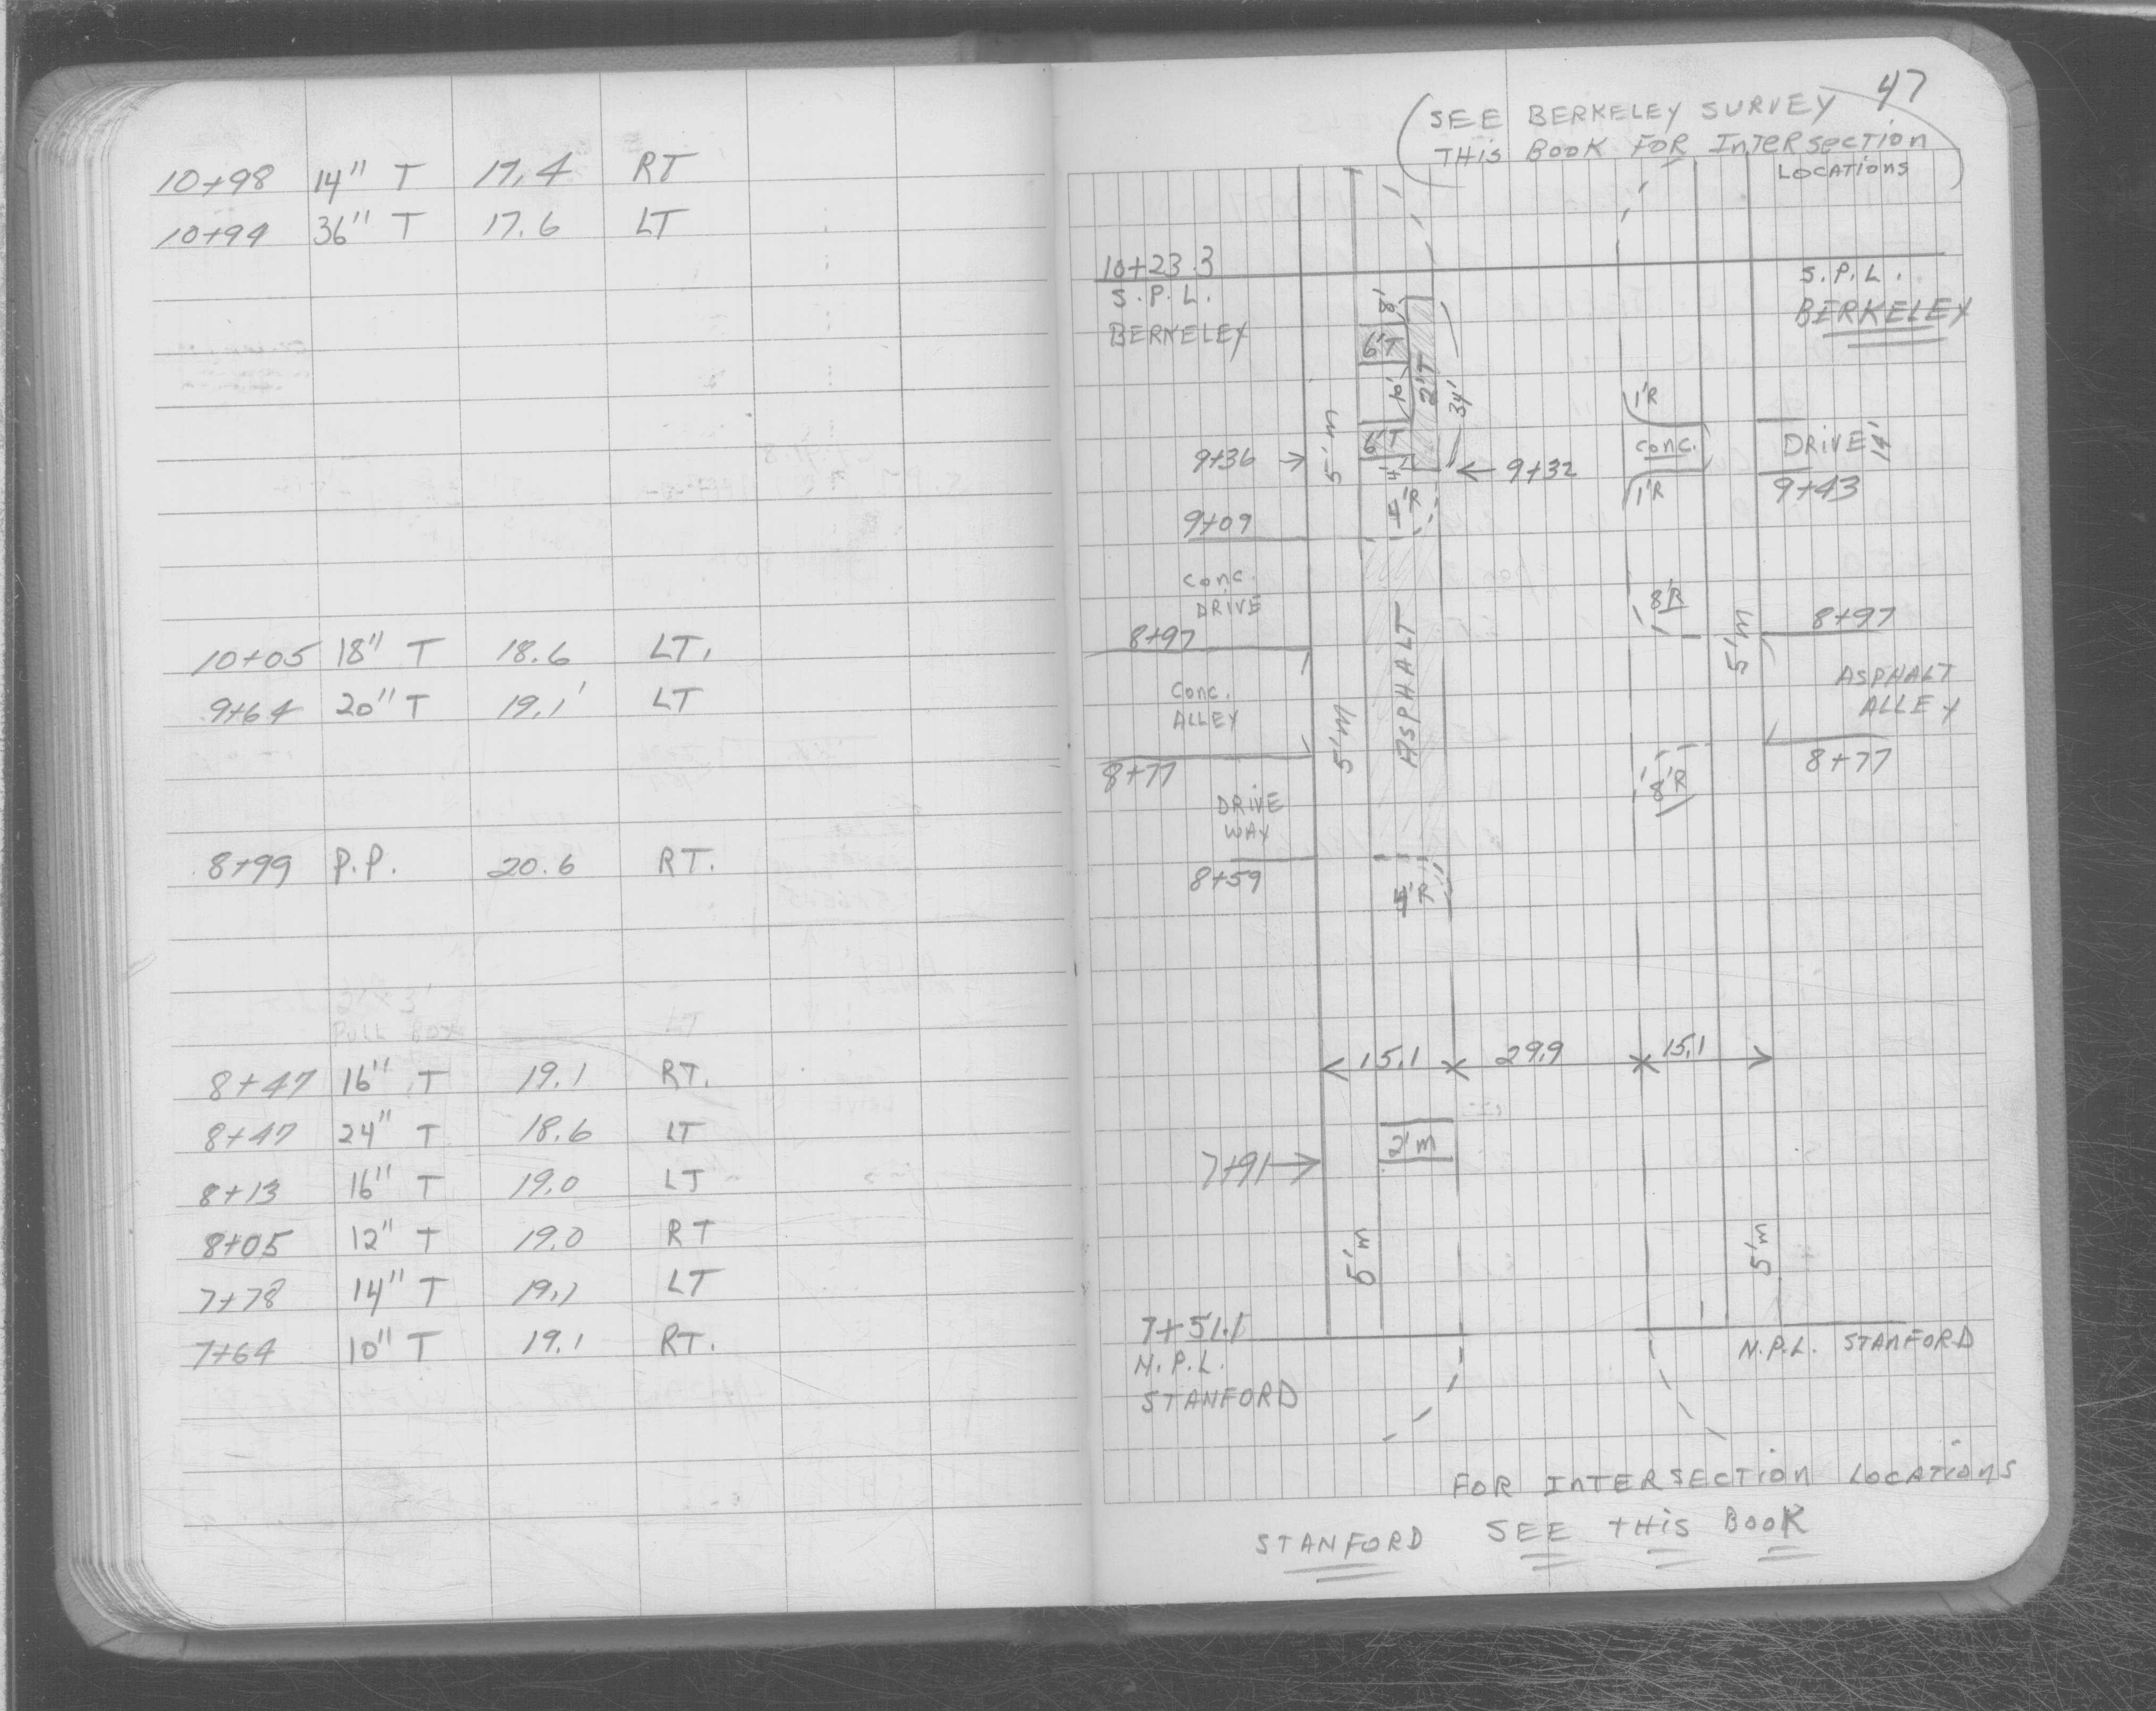 10+98 14" T 17.4 RT
10+94 36" T 17.6 LT
10+05 18" T 18.6 LT.
9+64 20" T 19.1' LT
8+99 P.P. 20.6 RT.
PULL BOX LT
8+47 16" T 19.1 RT.
8+47 24" T 18.6 LT
8+13 16" T 19.0 LT
8+05 12" T 19.0 RT
7+78 14" T 19.1 LT
7+64 10" T 19.1 RT.
47
(SEE BERKELEY SURVEY
THIS BOOK FOR INTERSECTION
LOCATIONS)
10+23.3
S.P.L.
BERKELEY
S.P.L.
BERKELEY
8'
6'T
10'
2'T
34'
6'T
4'
5'm
9+36
9+32
1'R
CONC.
1'R
DRIVE
14'
9+43
9+09
CONC.
DRIVE
8+97
8'R
5'm
8+97
CONC.
ALLEY
5'm
ASPHALT
ASPHALT
ALLEY
8+77
8'R
8+77
DRIVE
WAY
8+59
15.1 29.9 15.1
2'm
7+91
5'm
5'm
7+51.1
N.P.L.
STANFORD
N.P.L. STANFORD
FOR INTERSECTION LOCATIONS
STANFORD SEE THIS BOOK